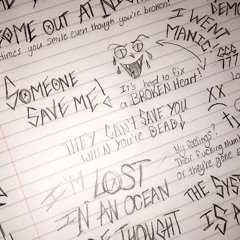 OME OUT AT N
times you smile even though you're broken!
I WENT
MANIC
666
777
SOMEONE
SAVE ME!
It's hard to fix
a BROKEN Heart!
THEY CAN'T SAVE YOU
WHEN YOU'RE DEAD
My Feelings?
They're fucking Numb
or they're gone
I'M LOST
IN AN OCEAN
THOUGHT
THE SYS
IS A